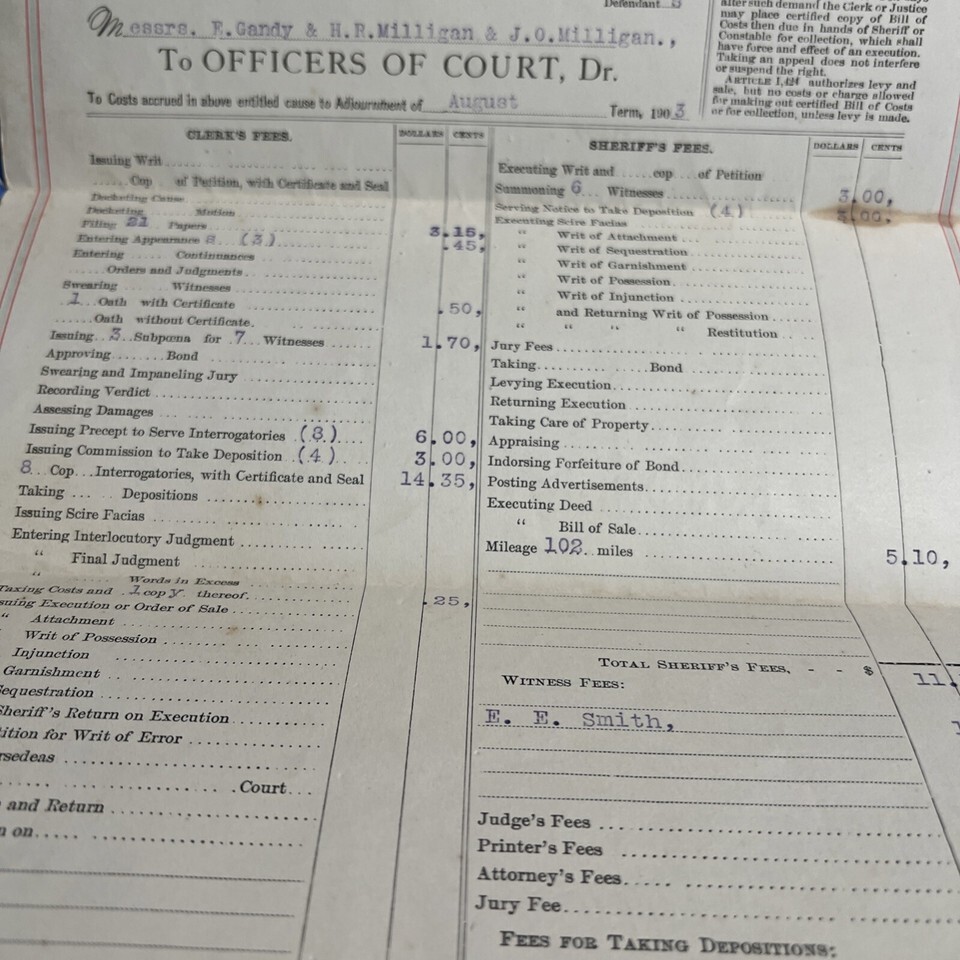 Defendant s
Messrs. E.Gandy & H.R.Milligan & J.O.Milligan.,
To OFFICERS OF COURT, Dr.
To Costs accrued in above entitled cause to Adjournment of August Term, 1903
after such demand the Clerk or Justice
may place certified copy of Bill of
Costs then due in hands of Sheriff or
Constable for collection, which shall
have force and effect of an execution.
Taking an appeal does not interfere
or suspend the right.
ARTICLE 1,424 authorizes levy and
sale, but no costs or charge allowed
for making out certified Bill of Costs
or for collection, unless levy is made.
CLERK'S FEES. DOLLARS CENTS
Issuing Writ
Cop of Petition, with Certificate and Seal
Docketing Cause
Docketing Motion
Filing 21 Papers 3.15,
Entering Appearance s. (3) .45,
Entering Continuances
Orders and Judgments
Swearing Witnesses
1 Oath with Certificate .50,
Oath without Certificate.
Issuing 3 Subpœna for 7 Witnesses 1.70,
Approving Bond
Swearing and Impaneling Jury
Recording Verdict
Assessing Damages
Issuing Precept to Serve Interrogatories (8) 6.00,
Issuing Commission to Take Deposition (4) 3.00,
8 Cop Interrogatories, with Certificate and Seal 14.35,
Taking Depositions
Issuing Scire Facias
Entering Interlocutory Judgment
“ Final Judgment
“ Words in Excess
Taxing Costs and 1 copy thereof. .25,
suing Execution or Order of Sale
“ Attachment
Writ of Possession
Injunction
Garnishment
equestration
Sheriff's Return on Execution
ition for Writ of Error
rsedeas
Court
and Return
n on
SHERIFF'S FEES. DOLLARS CENTS
Executing Writ and cop of Petition
Summoning 6 Witnesses 3.00,
Serving Notice to Take Deposition (4) 3.00,
Executing Scire Facias
“ Writ of Attachment
“ Writ of Sequestration
“ Writ of Garnishment
“ Writ of Possession
“ Writ of Injunction
“ and Returning Writ of Possession
“ “ “ “ Restitution
Jury Fees
Taking Bond
Levying Execution
Returning Execution
Taking Care of Property
Appraising
Indorsing Forfeiture of Bond
Posting Advertisements
Executing Deed
“ Bill of Sale
Mileage 102 miles 5.10,
TOTAL SHERIFF'S FEES, - - $ 11.
WITNESS FEES:
E. E. Smith,
Judge's Fees
Printer's Fees
Attorney's Fees
Jury Fee
FEES FOR TAKING DEPOSITIONS: